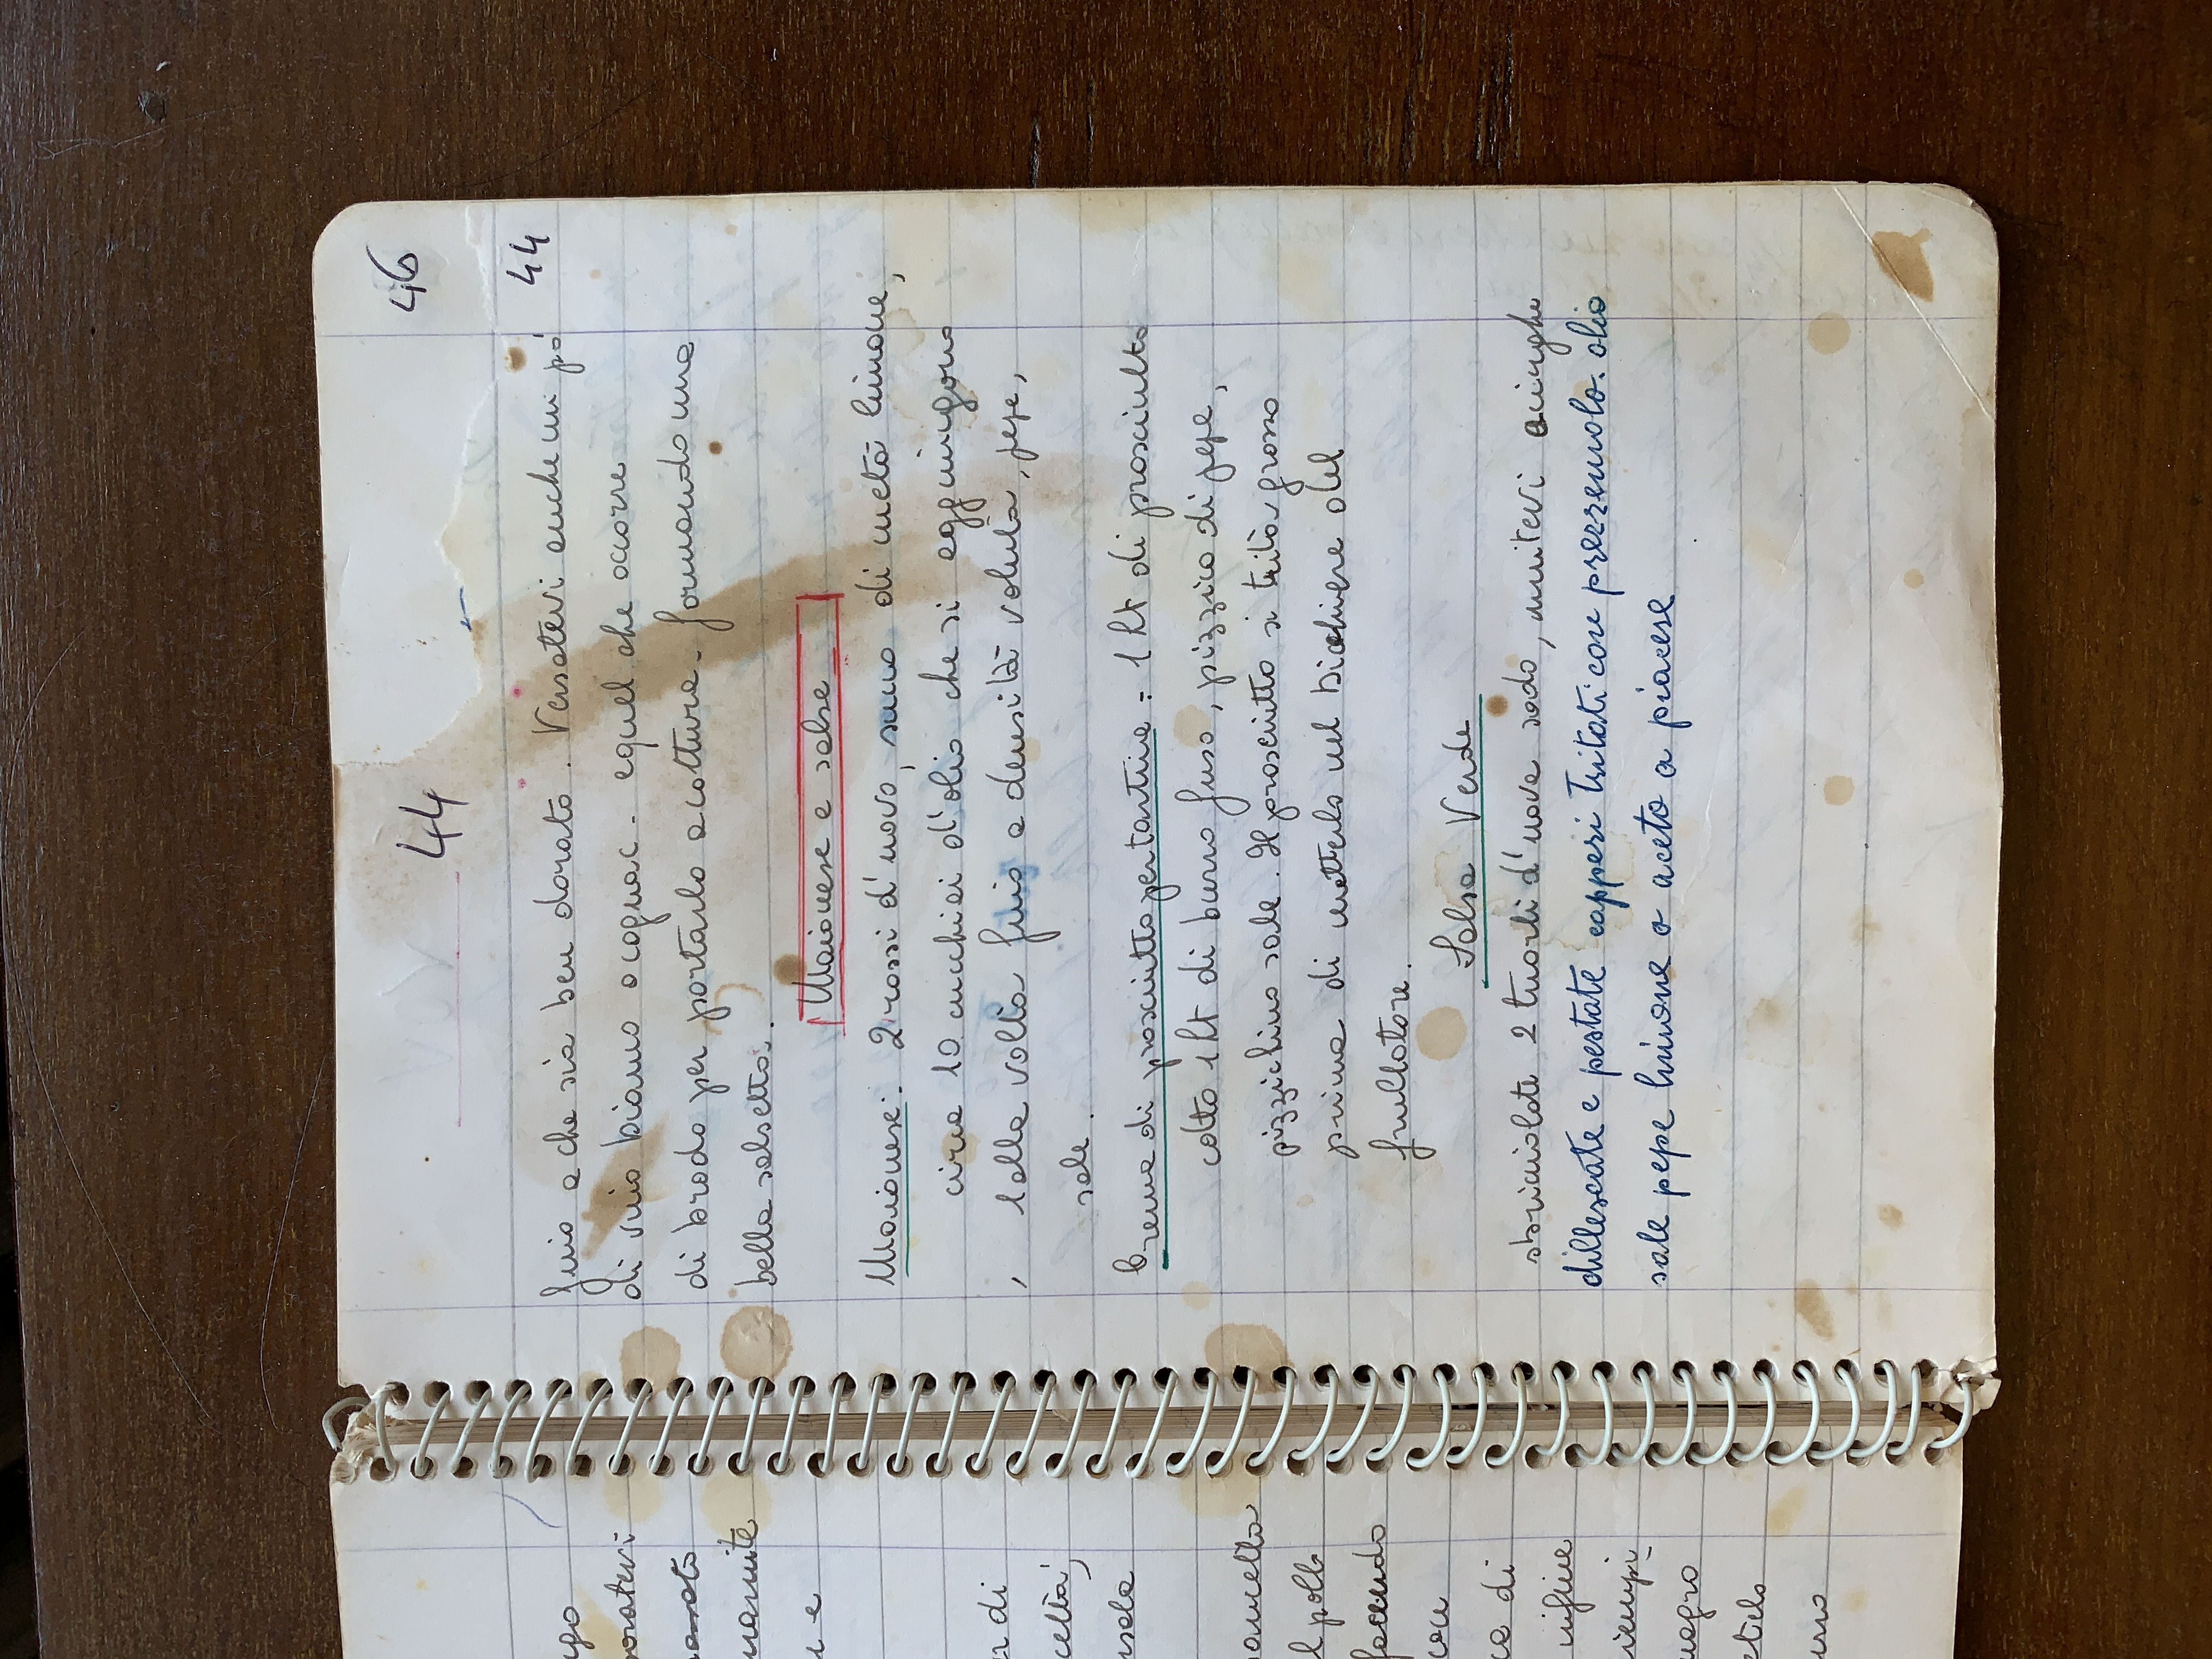 ugo
poratevi
mamite
u e
di
cellà,
nsala
pancetta
l poll-
facendo
con
ca di
infine
riempi-
magro
etelo
urro
44
46
44
fino a che sia ben dorato. Versatevi anche un pò
di vino bianco o cognac - e quel che occorre
di brodo per portarlo a cottura - formando una
bella salsetta.
Maionese e salse
Maionese: 2 rossi d'uovo, succo di metà limone,
circa 10 cucchiai d'olio che si aggiungono
1 alla volta fino a densità voluta, pepe,
sale.
Crema di prosciutto per tartine = 1 ht di prosciutto
cotto 1 ht di burro fuso, pizzico di pepe,
pizzichino sale. Il prosciutto si trita grosso
prima di metterlo nel bicchiere del
frullatore.
Salsa Verde
sbriciolate 2 tuorli d'uova sodo, unitevi acciughe
dillescate e pestate capperi tritati con prezzemolo. olio
sale pepe limone o aceto a piacese